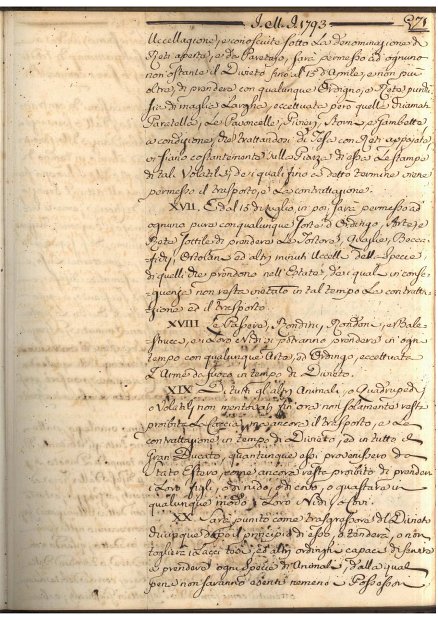 I. M. I. 1793. 271
Uccellagione, e conosciute sotto la denominazione di
Reti aperte, e da Paretaio, sarà permesso ad ognuno
non ostante il Divieto fino al 15 d'Aprile, e non più
oltre, di prendere con qualunque Ordigno, e Rete purchè
sia di maglie larghe, eccettuate però quelle
Paratella, Le Pavoncelle, Pivieri, Storni, e Gambette
a condizione, che trattandosi di Tesa con Reti appoiate,
vi siano costantemente sulla Piazza di essa Le stampe
di tal Volatili, de' quali fino a detto termine viene
permesso il trasporto, e La contrattazione.
XVII. Ed al 15 di Luglio in poi sarà permesso ad
ognuno pure con qualunque sorte d'Ordingo, Arte, e
Rete sottile di prendere Le Tortore, Quaglie, Becca-
fichi, Ortolani ed altri minuti Uccelli della specie
di quelli che prendono nell'Estate, de' quali in conse-
quenza non resta vietato in tal tempo La contratta-
zione ed il trasporto.
XVIII Le Passere, Rondini, Rondoni, e Bale-
strucci, e i Loro Nidi si potranno prendere in ogni
tempo con qualunque Arte, ed Ordingo, eccettuata
L'Arme da fuoco in tempo di Divieto.
XIX Di tutti gli altri Animali, o Quadrupedi
o Volatili non mentovati fin ora non solamente resta
proibita La Caccia, ma ancora il trasporto, e La
contrattazione in tempo di Divieto, ed in tutto il
Gran Ducato, quantunque essi provenissero da
Stato Estero, come ancora resta proibito di prendere
i Loro figli, o di nido, o di covo, o guastare in
qualunque modo i Loro Nidi, e Covi.
XX Sarà punito come trasgressore del Divieto
chiunque dopo il principio di esso, o tenderà, o non
toglierà i Lacci tesi, ed altri ordinghi capaci di servire
a prendere ogni specie di Animali, dalla qual
pena non saranno esenti nemeno i Possessori